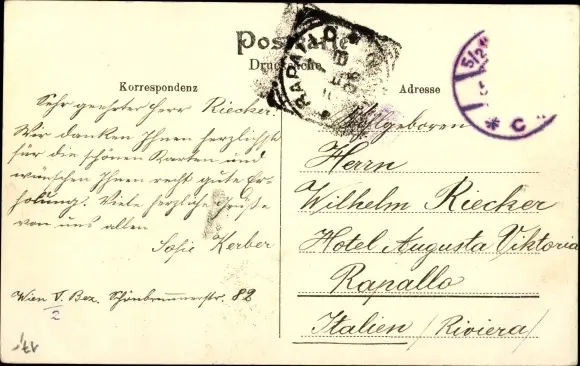 Postkarte
Drucksache
Korrespondenz
Adresse
RAPALLO
5/2
* C
Sehr geehrter Herr Riecker!
Wir danken Ihnen herzlichst
für die schönen Karten und
wünschen Ihnen recht gute Er-
holung. Viele herzliche Grüße
von uns allen
Sofie Kerber
Wien V. Bez. Schönbrunnerstr. 82
2
Wohlgeboren
Herrn
Wilhelm Riecker
Hotel Augusta Viktoria
Rapallo
Italien (Riviera)